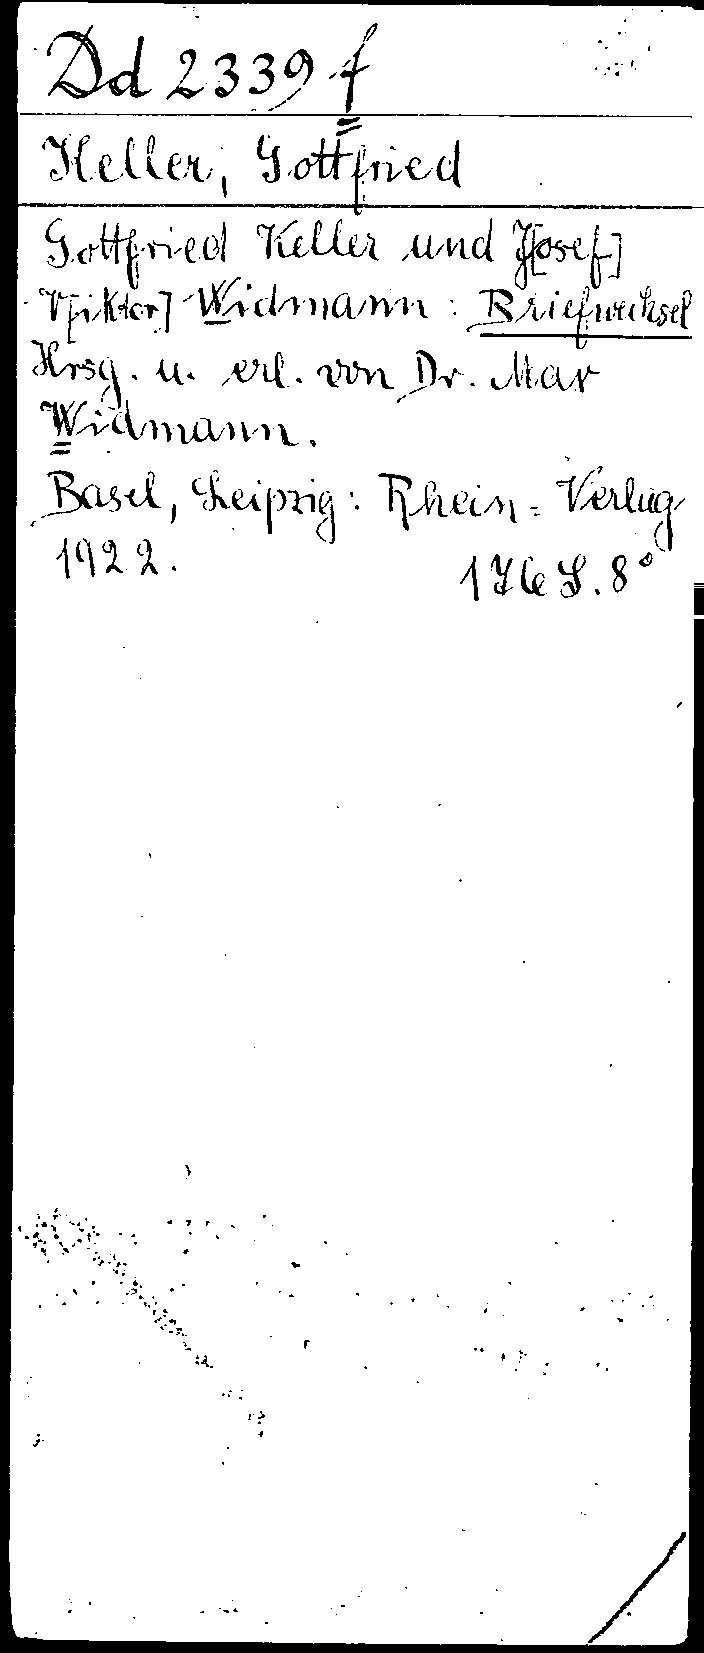 Dd 2339 f
Keller, Gottfried
Gottfried Keller und J[osef]
V[iktor] Widmann: Briefwechsel
Hrsg. u. erl. von Dr. Max
Widmann.
Basel, Leipzig: Rhein-Verlag
1922. 176 S. 8°